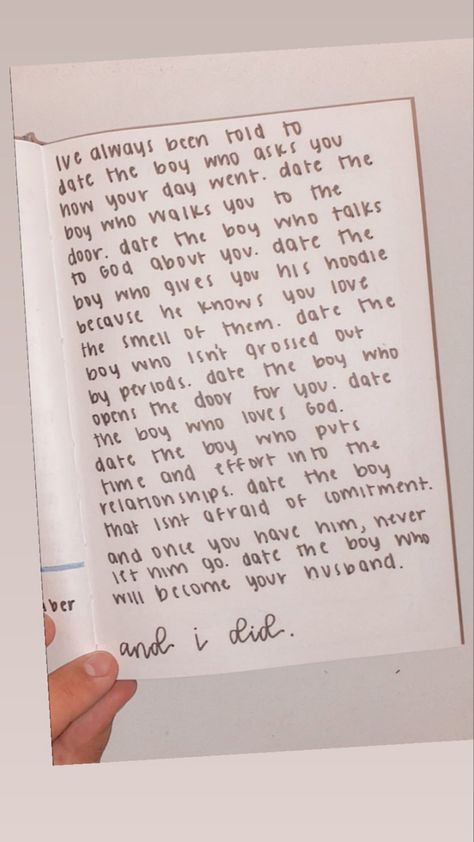 Ive always been told to
date the boy who asks you
how your day went. date the
boy who walks you to the
door. date the boy who talks
to God about you. date the
boy who gives you his hoodie
because he knows you love
the smell of them. date the
boy who isn't grossed out
by periods. date the boy who
opens the door for you. date
the boy who loves God.
date the boy who puts
time and effort into the
relationships. date the boy
that isnt afraid of comitment.
and once you have him, never
let him go. date the boy who
will become your husband.
and i did.